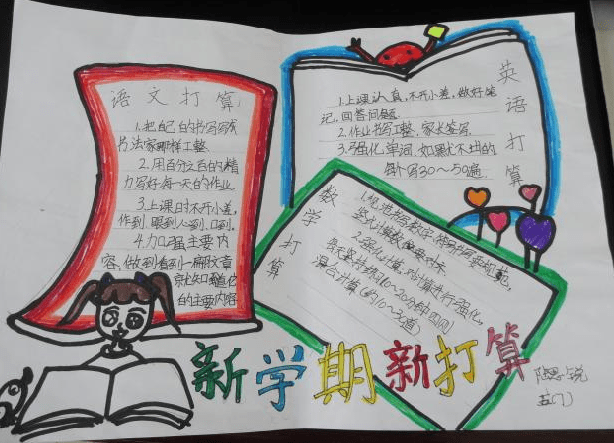 语文打算
1.把自己的书写写成
书法家那样工整
2.用百分之百的精
力写好每一天的作业
3.上课时不开小差,
作到:眼到心到、口到。
4.加强主要内
容,做到看到一篇文章
就知道它
的主要内容
英语打算
1.上课认真,不开小差,做好笔
记,回答问题.
2.作业书写工整,家长签写
3.强化单词,如默不出的
每个写30~50遍
数学打算
1.规范书写数字,符号书写要规范,
2.强化计算,对计算进行强化,
每天坚持练10~20分钟四则
混合计算(约10~30道)
新学期新打算